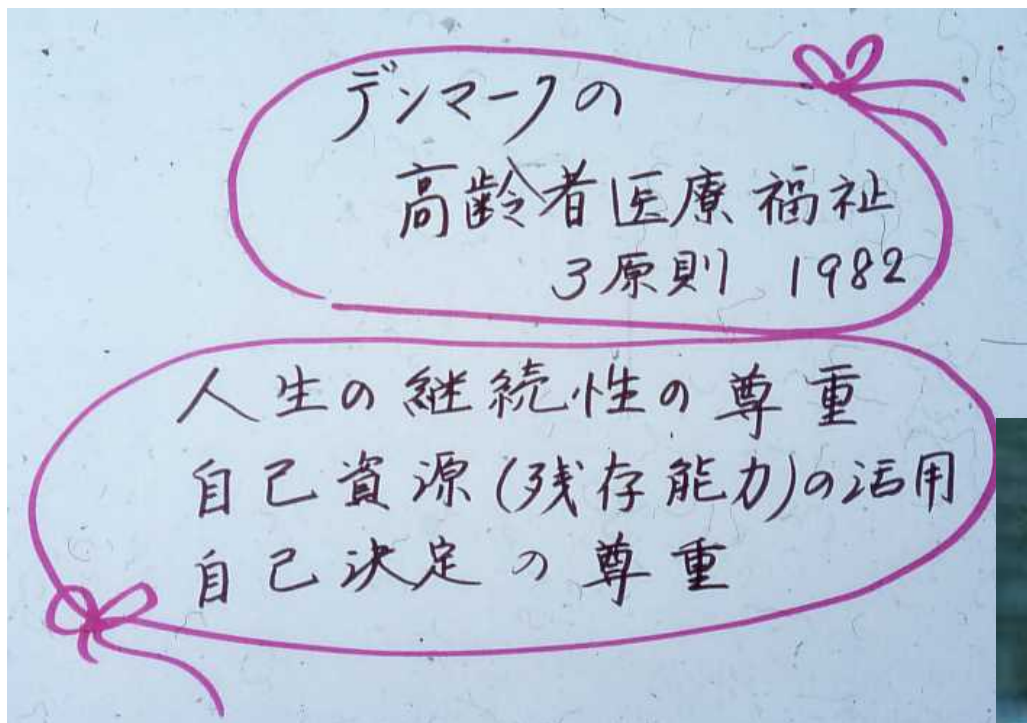 デンマークの
高齢者医療福祉
3原則 1982
人生の継続性の尊重
自己資源(残存能力)の活用
自己決定の尊重